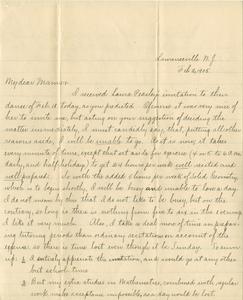 Lawrenceville N.J.
Feb 2, 1905.
My dear Mamma:
I received Laura Peasley's invitation to their
dance of Feb. 18 today, as you predicted. Of course it was very nice of
her to invite me, but acting on your suggestion of deciding the
matter immediately, I must candidly say, that, putting all other
reasons aside, I will be unable to go. Just as now it takes
every minute of time, except that set aside for exercise (4 to 6 P.M.
daily, and half-holiday) to get 24 hours per week well recited and
well prepared. So with the added 2 hours per week of Solid Geometry
which is to begin shortly, I will be busy and unable to lose a day.
I do not mean by this that I do not like to be busy, but on the
contrary, so long as there is nothing from five to six in the evening
I like it very much. Also, it takes a deal more of time in prepar-
ing tutoring periods than ordinary recitations on account of the
expense, so there is time lost even though it be Sunday. To sum
up: 1 I entirely appreciate the invitation, and would go at any other
but school time
2 But my extra studies in Mathematics, combined with regular
work make acceptance impossible, as a day would be lost.